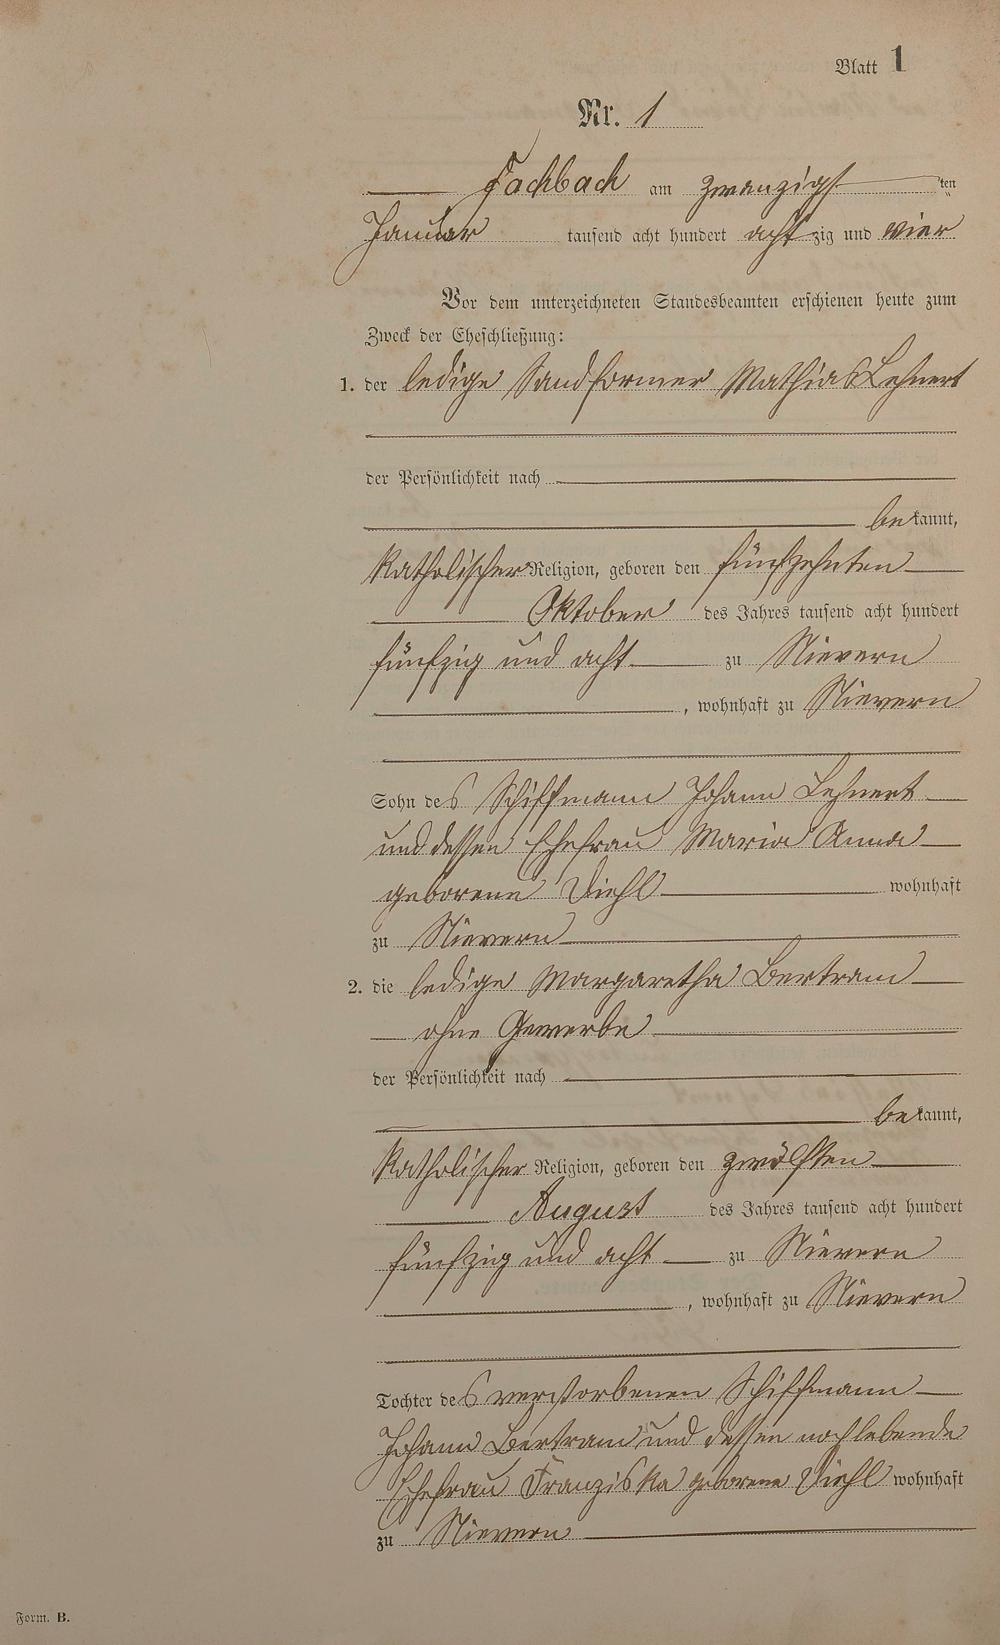 Blatt 1
Nr. 1
Fachbach am zwanzigsten
Januar tausend acht hundert achtzig und vier
Vor dem unterzeichneten Standesbeamten erschienen heute zum
Zweck der Eheschließung:
1. der ledige Sandformer Mathias Lehnert
der Persönlichkeit nach
bekannt,
katholischer Religion, geboren den fünfzehnten
Oktober des Jahres tausend acht hundert
fünfzig und acht zu Nievern
, wohnhaft zu Nievern
Sohn des Schiffmann Johann Lehnert
und dessen Ehefrau Maria Anna
geborene Diehl wohnhaft
zu Nievern
2. die ledige Margaretha Bertram
ohne Gewerbe
der Persönlichkeit nach
bekannt,
katholischer Religion, geboren den zwölften
August des Jahres tausend acht hundert
fünfzig und acht zu Nievern
, wohnhaft zu Nievern
Tochter des verstorbenen Schiffmann
Johann Bertram und dessen noch lebende
Ehefrau Franziska geborene Diehl wohnhaft
zu Nievern
Form. B.